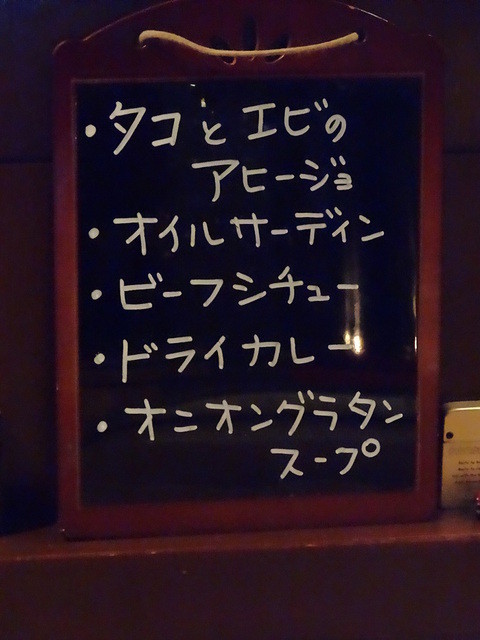 ・タコとエビの
アヒージョ
・オイルサーディン
・ビーフシチュー
・ドライカレー
・オニオングラタン
スープ